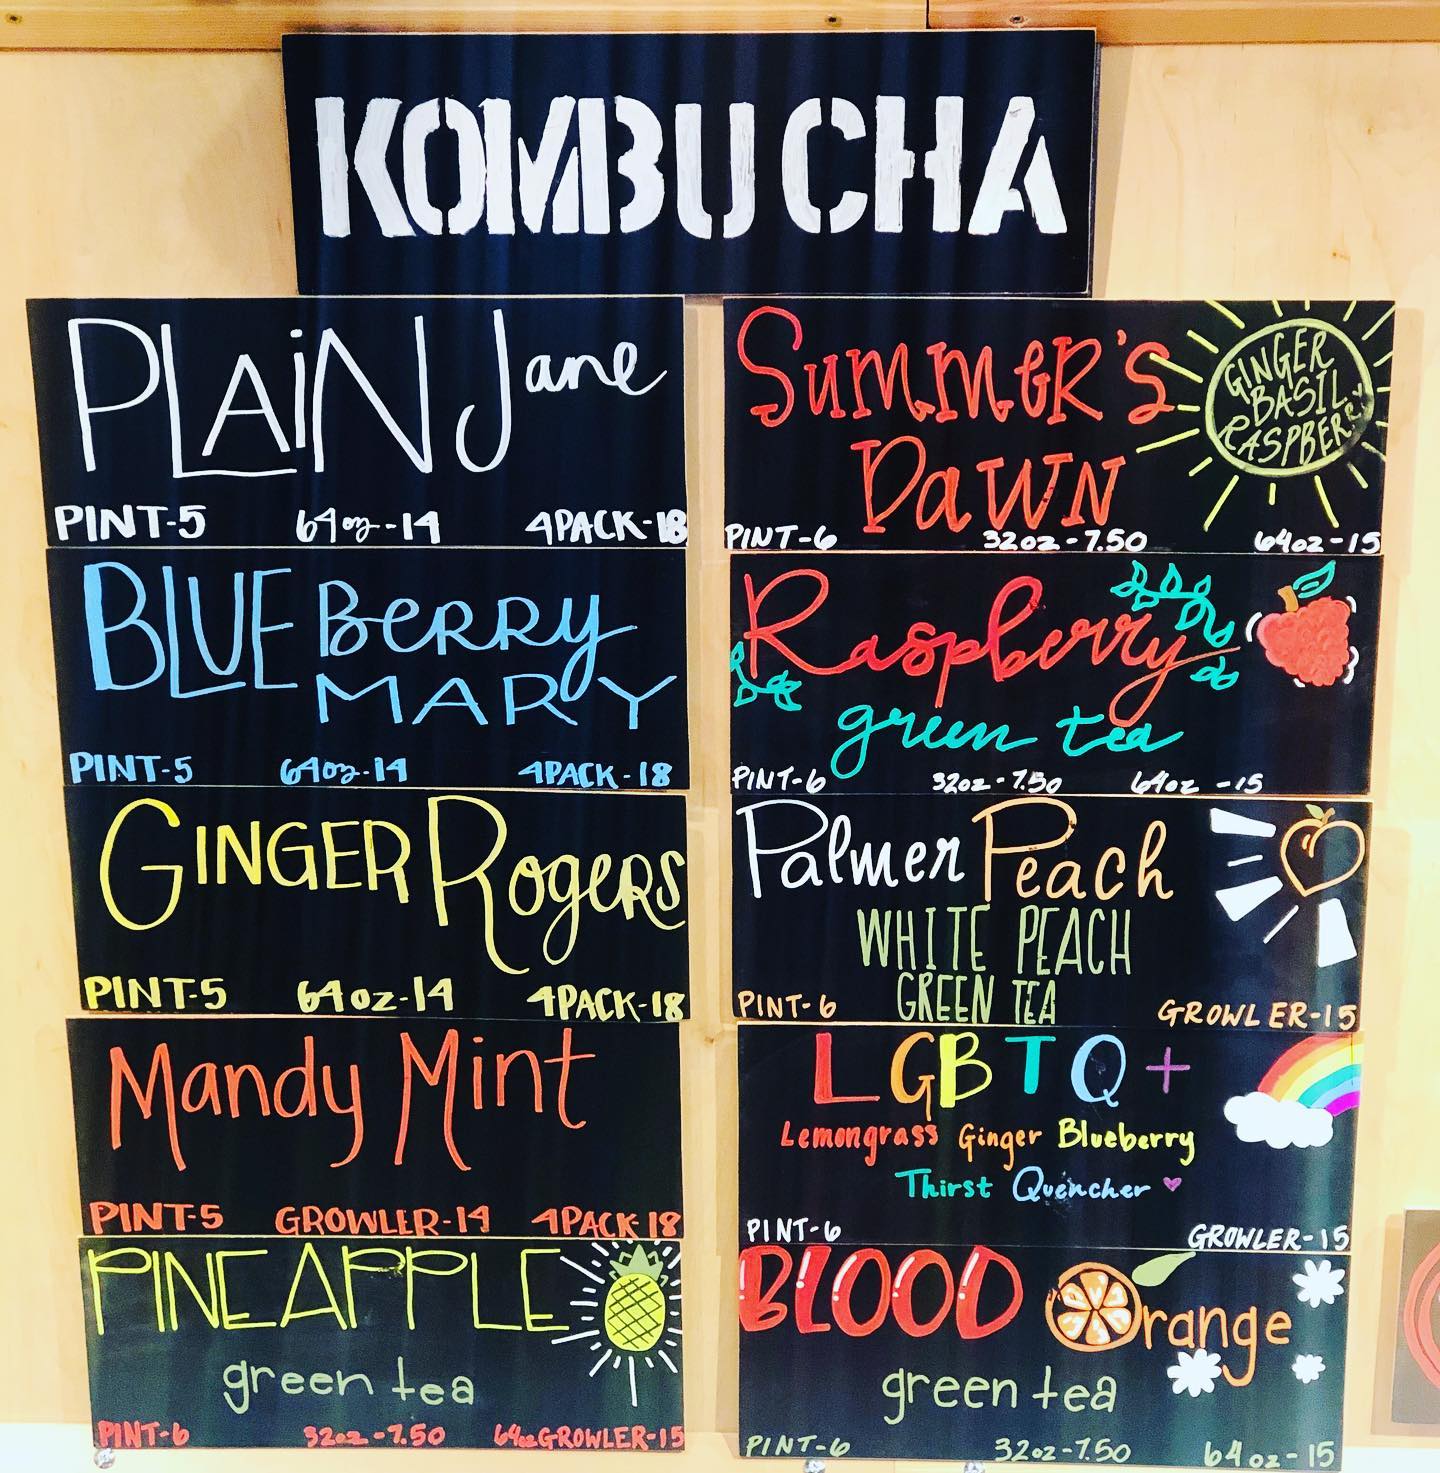 KOMBUCHA
PLAiN Jane
PINT-5 64oz-14 4PACK-18
BLUEBerry
MARY
PINT-5 64oz-14 4PACK-18
GINGER RogeRs
PINT-5 64oz-14 4PACK-18
Mandy Mint
PINT-5 GROWLER-14 4PACK-18
PINEAPPLE
green tea
PINT-6 32oz-7.50 64oz GROWLER-15
SummeR's
DaWN
GINGER
BASIL
RASPBERRY
PINT-6 32oz-7.50 64oz-15
Raspberry
green tea
PINT-6 32oz-7.50 64oz -15
Palmer Peach
WHITE PEACH
GREEN TEA
PINT-6 GROWLER-15
LGBTQ+
Lemongrass Ginger Blueberry
Thirst Quencher
PINT-6 GROWLER-15
BLOOD Orange
green tea
PINT-6 32oz-7.50 64oz-15